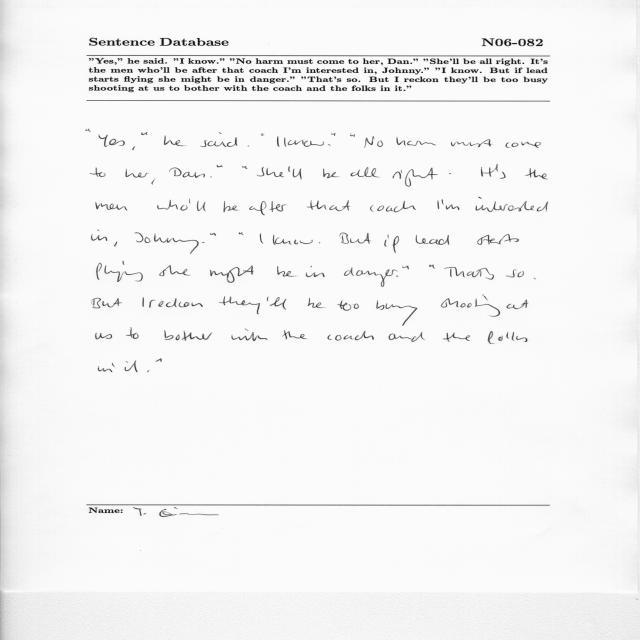 Sentence Database N06-082
"Yes," he said. "I know." "No harm must come to her, Dan." "She'll be all right. It's
the men who'll be after that coach I'm interested in, Johnny." "I know. But if lead
starts flying she might be in danger." "That's so. But I reckon they'll be too busy
shooting at us to bother with the coach and the folks in it."
"Yes," he said. "I know." "No harm must come
to her, Dan." "She'll be all right. It's the
men who'll be after that coach I'm interested
in, Johnny." "I know. But if lead starts
flying she might be in danger." "That's so.
But I reckon they'll be too busy shooting at
us to bother with the coach and the folks
in it."
Name: T.